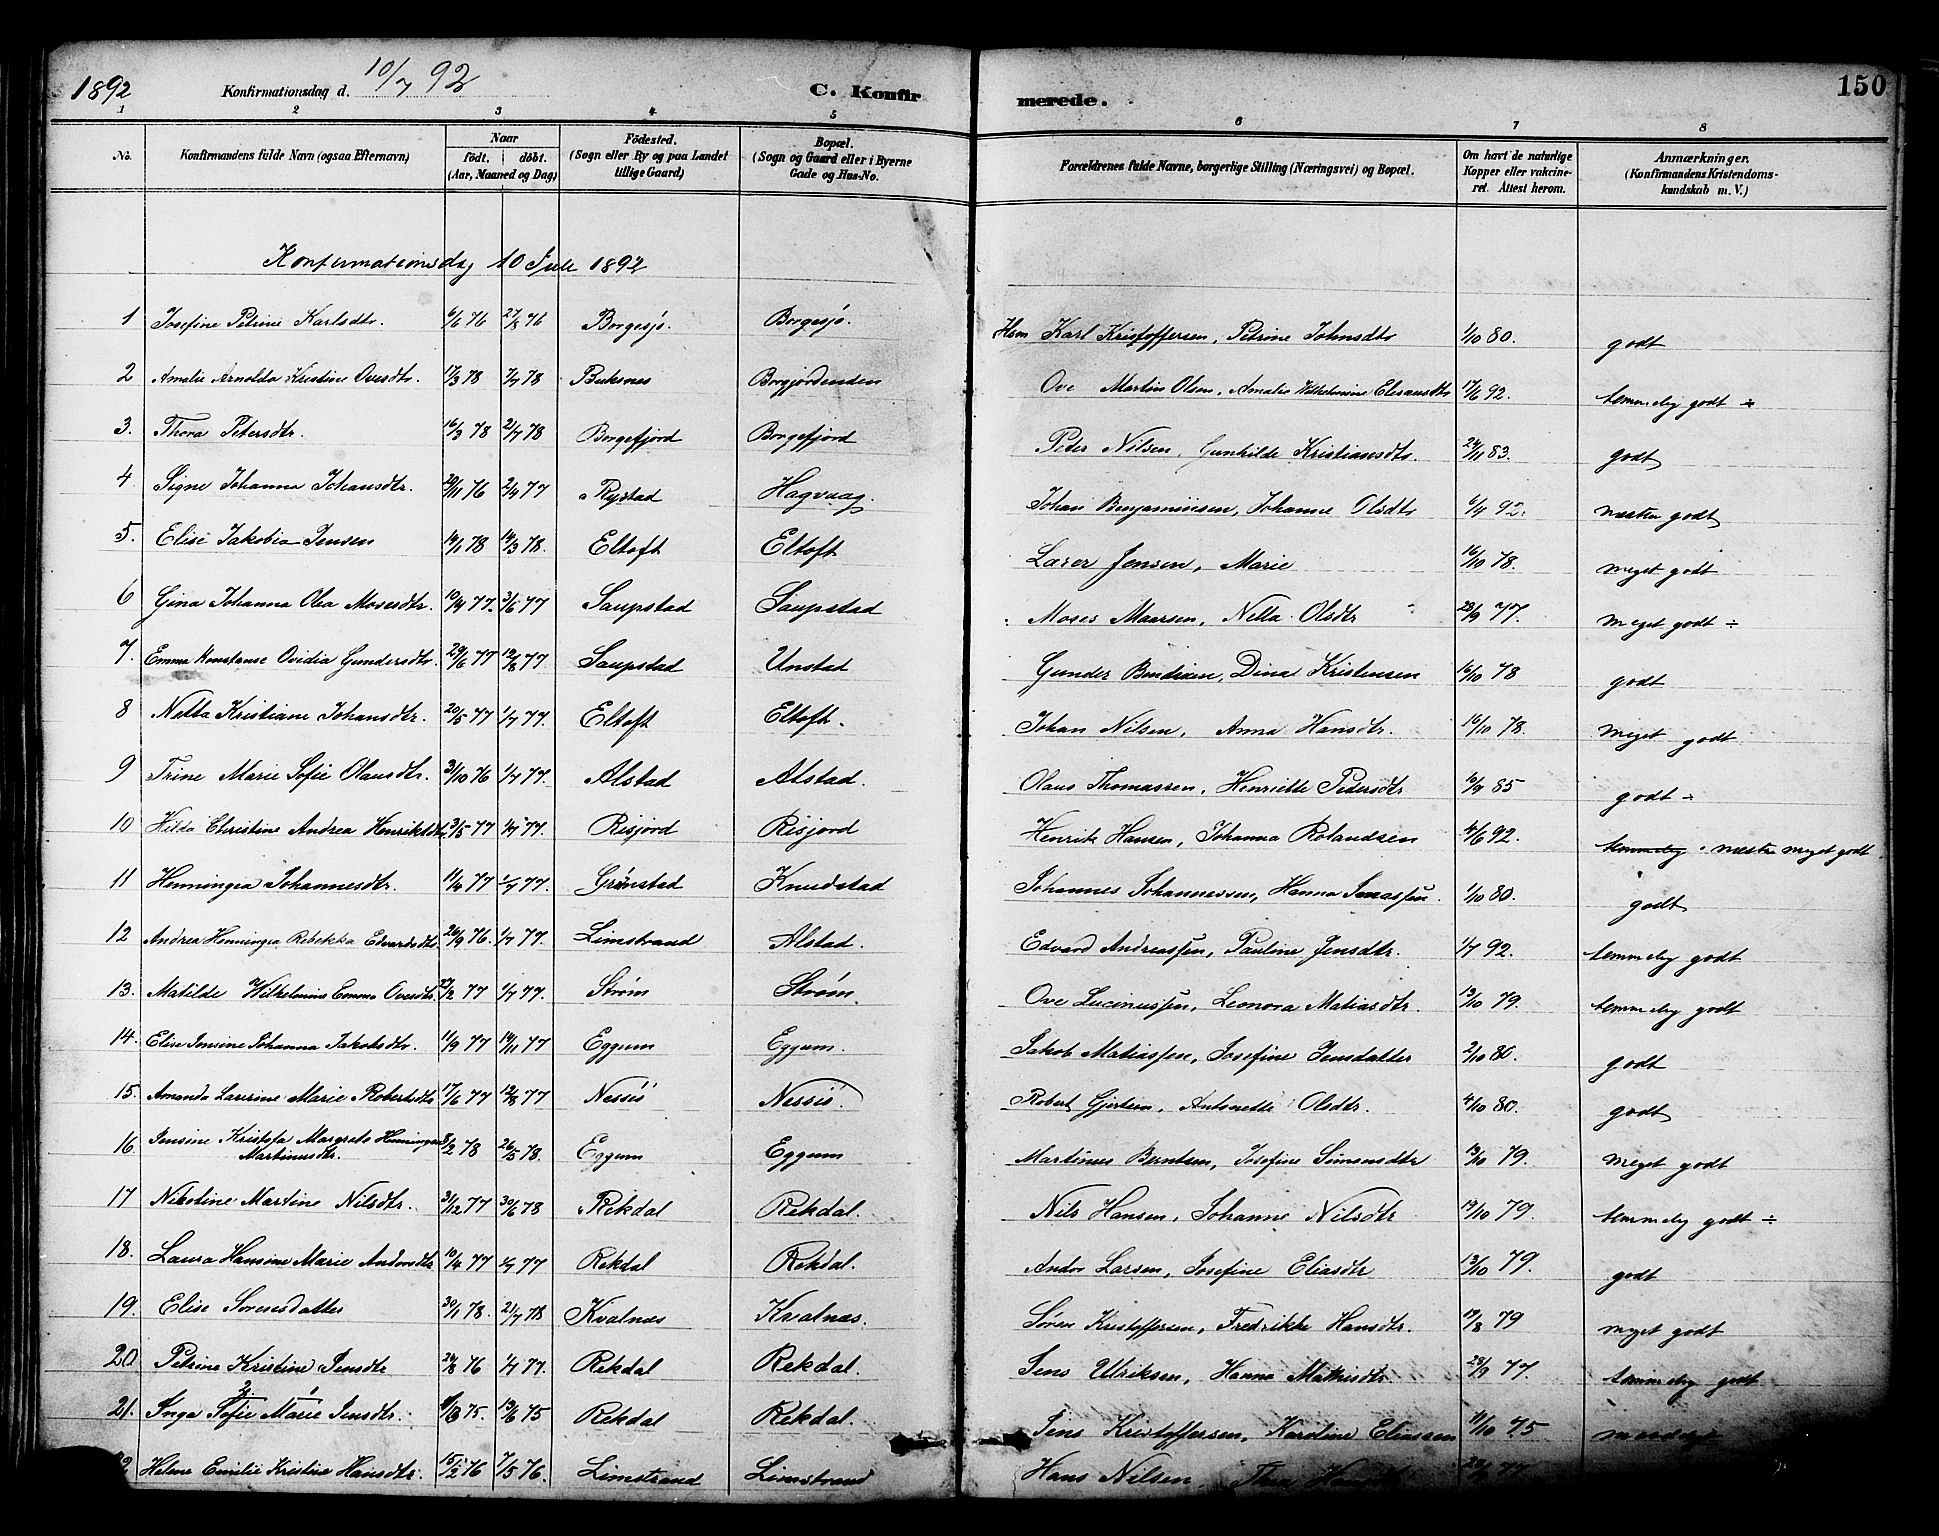 1892 Konfirmationsdag d. 10/7 92 C. Konfirmerede. 150
1 2 3 4 5 6 7 8
No. Konfirmandens fulde Navn (ogsaa Efternavn) Naar födt. döbt. (Aar, Maaned og Dag) Födested. (Sogn eller By og paa Landet tillige Gaard) Bopæl. (Sogn og Gaard eller i Byerne Gade og Hus-No. Forældrenes fulde Navne, borgerlige Stilling (Næringsvei) og Bopæl. Om havt de naturlige Kopper eller vakcineret. Attest herom. Anmærkninger. (Konfirmandens Kristendomskundskab m. V.)
Konfirmationsdag 10 Juli 1892
1 Josefine Petrine Karlsdtr. 6/6 76 27/8 76 Borgesjø. Borgesjø. Hsm Karl Kristoffersen, Petrine Johnsdtr 1/10 80. godt
2 Amalie Arnolda Kristine Ovesdtr. 17/3 78 7/7 78 Buksnes Borgjordenden Ove Martin Olsen, Amalie Wilhelmine 17/6 92. temmelig godt ÷
3. Thora Petersdtr. 16/3 78 21/7 78 Borgefjord Borgefjord Peder Nilsen, Gunhilde Kristiansdtr. 24/11 83. godt
4 Signe Johanna Johansdtr. 29/11 76 2/4 77 Rystad Hagvaag. Johan Benjaminsen, Johanne Olsdtr 6/7 92. næsten godt
5. Elise Jakobia Jensen 14/1 78 14/3 78. Eltoft Eltoft Lærer Jensen, Marie 16/10 78. meget godt
6 Gina Johanna Olea Mosesdtr. 10/4 77. 3/6 77 Saupstad Saupstad Moses Maarsen, Netta Olsdtr 23/9 77. meget godt ÷
7. Emma Konstanse Ovidia Gundersdtr. 29/6 77 19/8 77. Saupstad Unstad Gunder Bendixen, Dina Kristensen 16/10 78 godt
8 Netta Kristiane Johansdtr. 20/5 77 1/7 77. Eltoft Eltoft. Johan Nilsen, Anna Hansdtr. 16/10 78. meget godt
9 Trine Marie Sofie Olausdtr. 31/10 76 1/7 77. Alstad Alstad. Olaus Thomassen, Henriette Pedersdtr 10/9 85 godt ÷
10 Hilda Christine Andrea Henriksdtr. 3/5 77 1/7 77. Risjord Risjord Henrik Hansen, Johanna Rolandsen 4/6 92. temmelig næsten meget godt
11 Henningea Johannesdtr. 11/4 77 1/7 77. Grønstad Knudstad Johannes Johannessen, Hanna 1/10 80. godt
12 Andrea Henningea Rebekka Edvardsdtr. 20/9 76. 1/7 77. Limstrand Alstad. Edvard Andreassen, Pauline Jensdtr. 1/7 92. temmelig godt
13. Matilde Wilhelmine Emma Ovesdtr. 22/2 77 1/7 77. Strøm Strøm. Ove Lucinussen, Leonora Matiasdtr. 13/10 79. temmelig godt
14. Elise Jensine Johanna Jakobsdtr. 11/9 77 14/11 77 Eggum Eggum. Jakob Matiassen, Josefine Jensdatter 2/10 80. godt
15. Amanda Laurine Marie Robertsdtr. 17/6 77 12/8 77 Nessiö Nessiö. Robert Gjertsen, Antonette Olsdtr. 4/10 80. godt
16. Jensine Kristofa Margrete Henningea Martinusdtr. 8/2 78 26/5 78. Eggum Eggum Martinus Berntsen, Josefine Simonsdtr 13/10 79. meget godt
17 Nikoline Martine Nilsdtr. 31/12 77 30/6 78 Rekdal Rekdal. Nils Hansen, Johanne Nilsdtr 13/10 79. temmelig godt ÷
18. Laura Hansine Marie Andorsdtr 10/4 77 1/7 77 Rekdal Rekdal. Andor Larsen, Josefine Eliasdtr 13/10 79. godt
19. Elise Sørensdatter 30/1 78. 21/7 78 Kvalnæs Kvalnæs. Søren Kristoffersen, Fredrikke Hansdtr. 19/8 79 meget godt
20 Petrine Kristine Jensdtr 24/8 76 1/7 77. Rekdal Rekdal. Jens Ulriksen, Hanna Mathisdtr. 23/9 77. temmelig godt
21. Inga Sofie Marie Jensdtr. 75. 13/6 75 Rekdal Rekdal. Jens Kristoffersen, Karoline Eliassen 11/10 75
Helene Emilie Kristine Hansdtr. 15/2 76 7/5 76. Limstrand Limstrand Hans Nilsen, 77